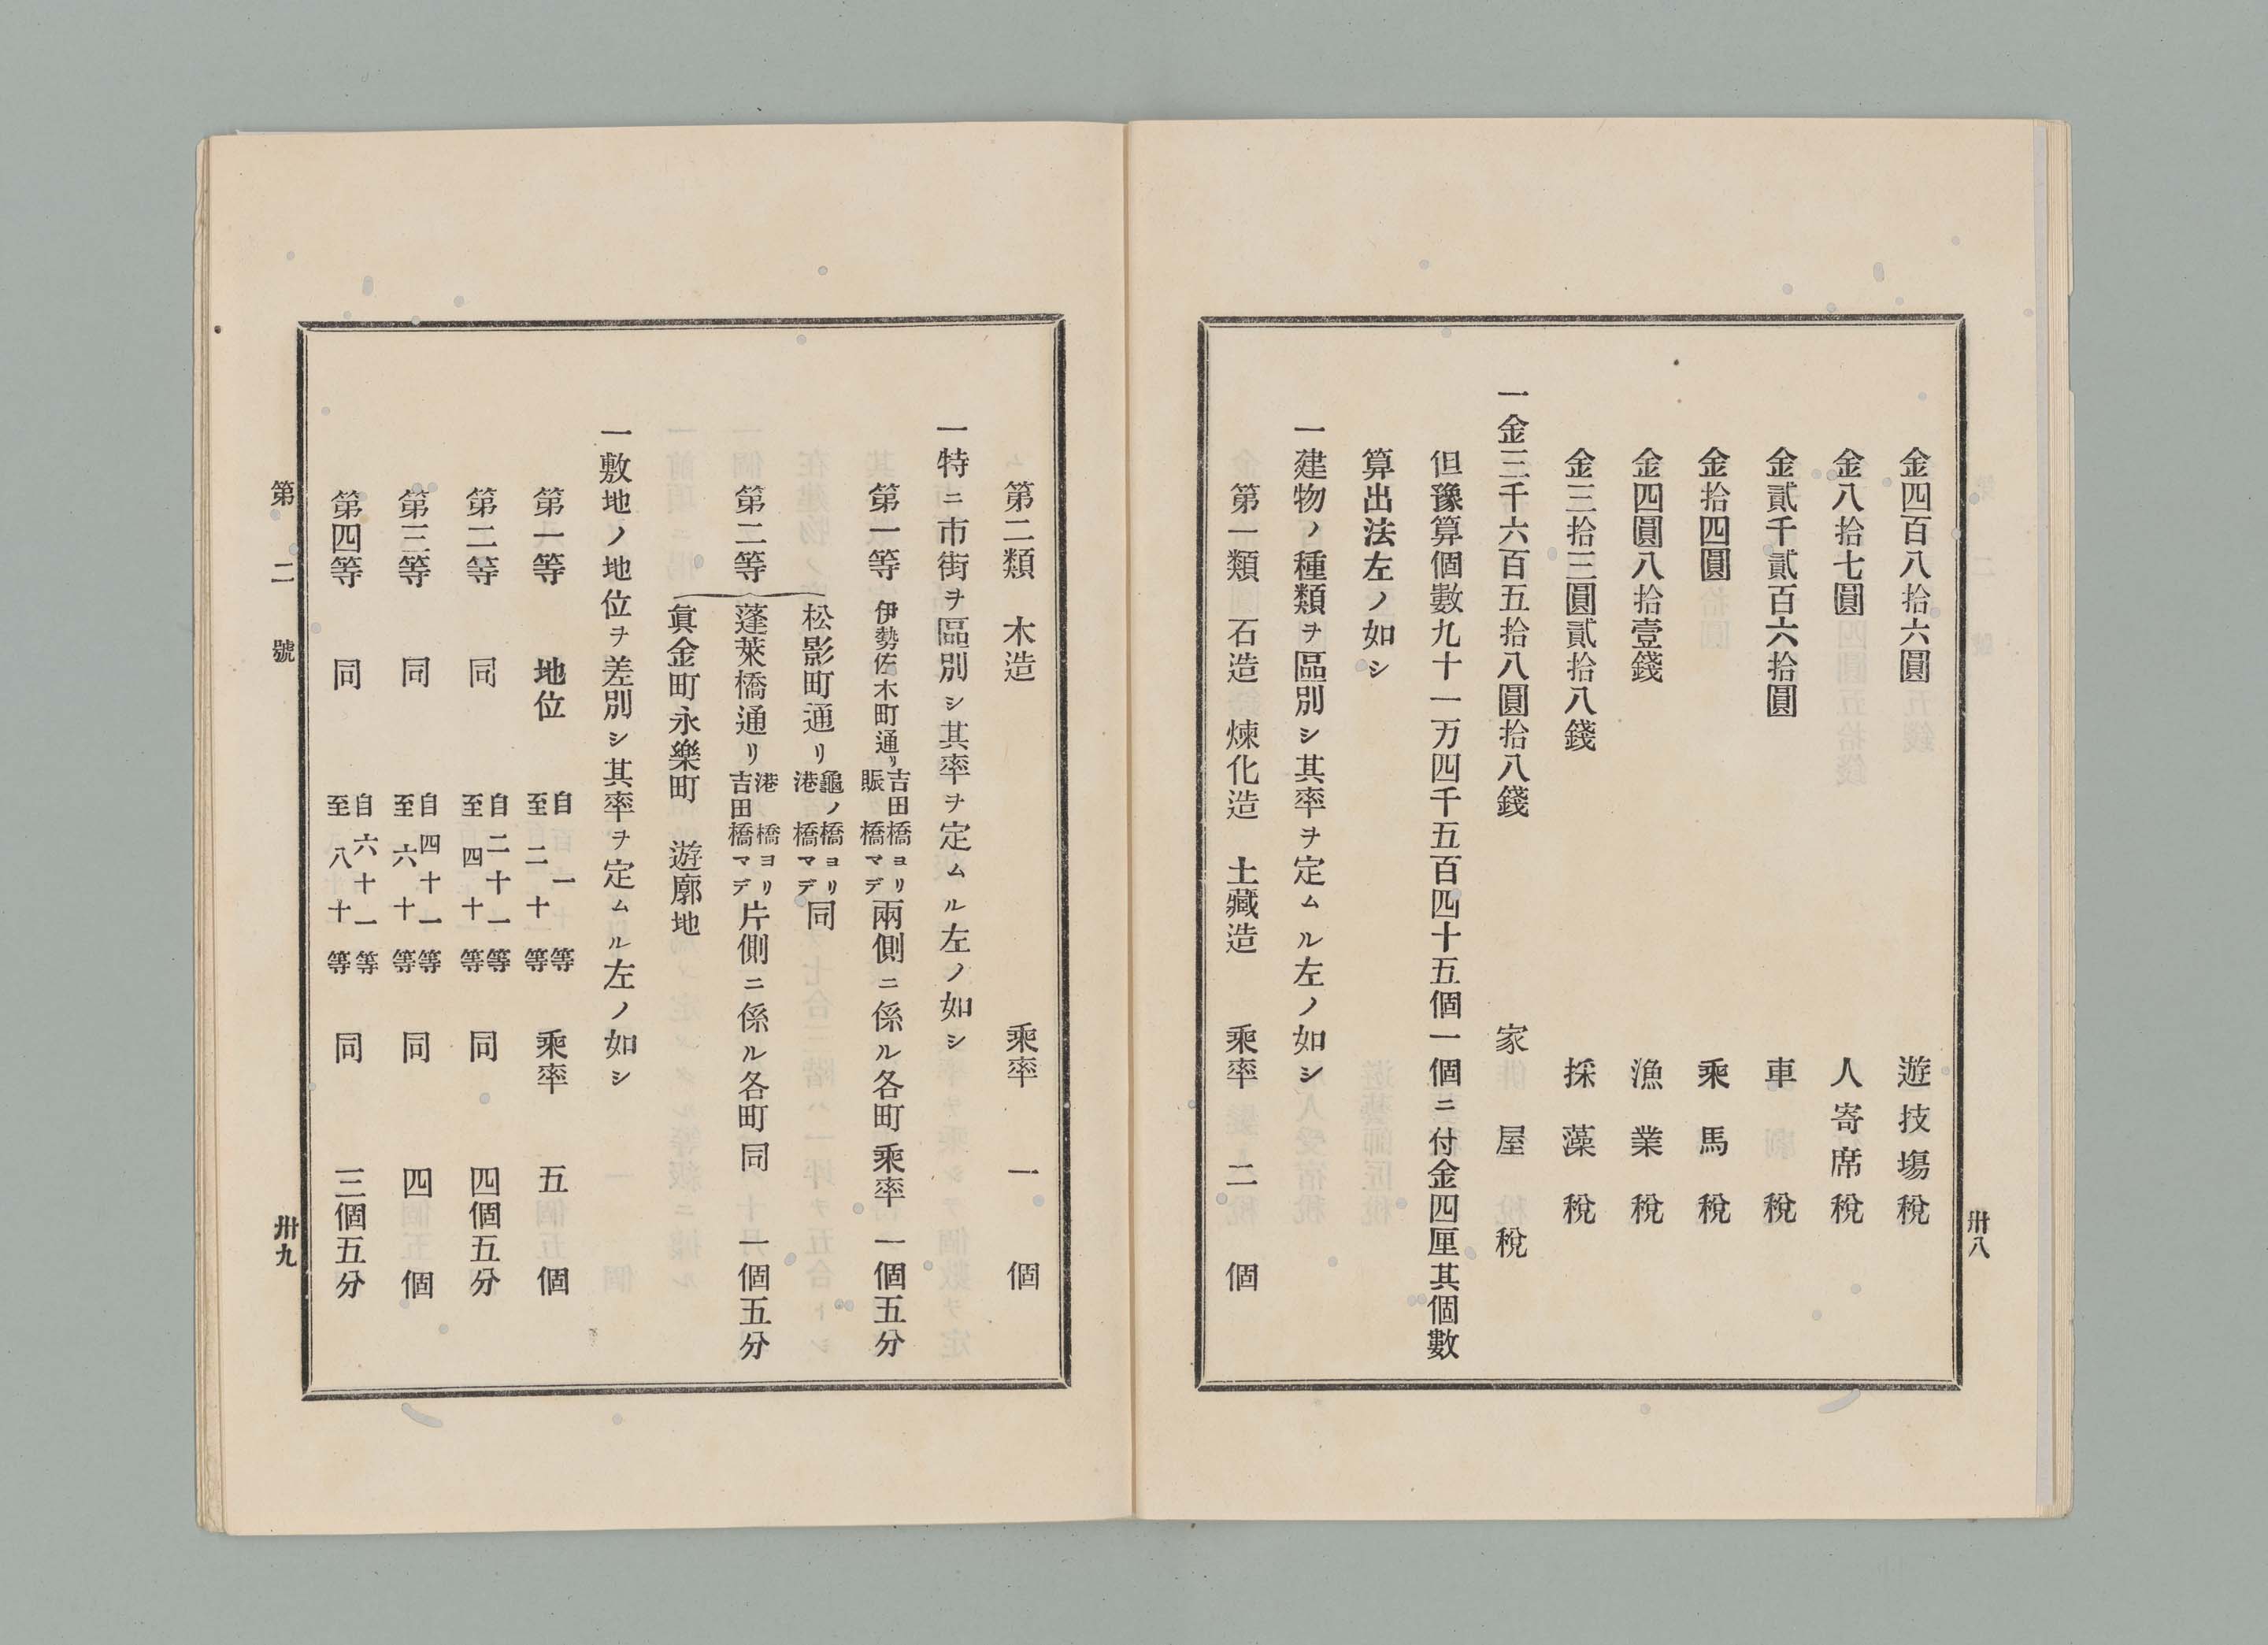 金四百八拾六圓　遊技塲稅
金八拾七圓　人寄席稅
金貳千貳百六拾圓　車稅
金拾四圓　乘馬稅
金四圓八拾壹錢　漁業稅
金三拾三圓貳拾八錢　採藻稅
一金三千六百五拾八圓拾八錢　家屋稅
但豫算個數九十一万四千五百四十五個一個ニ付金四厘其個數
算出法左ノ如シ
一建物ノ種類ヲ區別シ其率ヲ定ムル左ノ如シ
第一類　石造　煉化造　土藏造　乘率　二個
卅八
第二類　木造　乘率　一個
一特ニ市街ヲ區別シ其率ヲ定ムル左ノ如シ
第一等　伊勢佐木町通リ吉田橋ヨリ賑橋マデ兩側ニ係ル各町　乘率　一個五分
第二等　松影町通リ龜ノ橋ヨリ港橋マデ同
蓬萊橋通リ港橋ヨリ吉田橋マデ片側ニ係ル各町　同　一個五分
眞金町永樂町　遊廓地
一敷地ノ地位ヲ差別シ其率ヲ定ムル左ノ如シ
第一等　地位　自一等至二十等　乘率　五個
第二等　同　自二十一等至四十等　同　四個五分
第三等　同　自四十一等至六十等　同　四個
第四等　同　自六十一等至八十等　同　三個五分
第二號
卅九